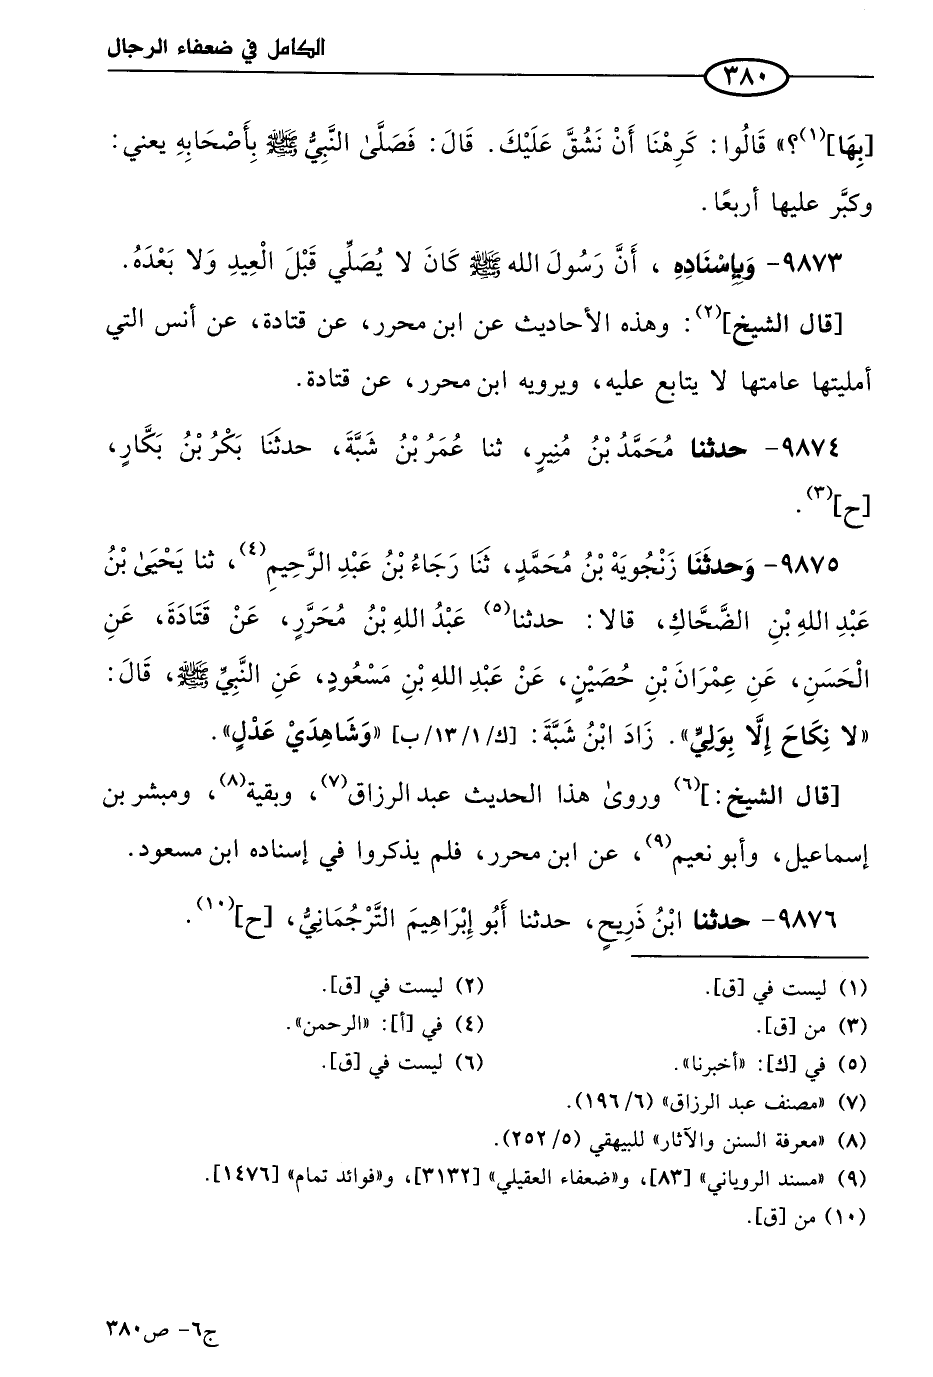 الكامل في ضعفاء الرجال
٣٨٠
[بِهَا](١)؟» قَالُوا: كَرِهْنَا أَنْ نَشُقَّ عَلَيْكَ. قَالَ: فَصَلَّىٰ النَّبِيُّ ﷺ بِأَصْحَابِهِ يعني:
وكبَّر عليها أربعًا.
٩٨٧٣- وَبِإِسْنَادِهِ ، أَنَّ رَسُولَ الله ﷺ كَانَ لا يُصَلِّي قَبْلَ الْعِيدِ وَلا بَعْدَهُ.
[قال الشيخ](٢): وهذه الأحاديث عن ابن محرر، عن قتادة، عن أنس التي
أمليتها عامتها لا يتابع عليه، ويرويه ابن محرر، عن قتادة.
٩٨٧٤- حدثنا مُحَمَّدُ بْنُ مُنِيرٍ، ثنا عُمَرُ بْنُ شَبَّةَ، حدثنَا بَكْرُ بْنُ بَكَّارٍ،
[ح](٣).
٩٨٧٥- وَحدثَنَا زَنْجُويَهْ بْنُ مُحَمَّدٍ، ثَنَا رَجَاءُ بْنُ عَبْدِ الرَّحِيمِ(٤)، ثنا يَحْيَىٰ بْنُ
عَبْدِ اللهِ بْنِ الضَّحَّاكِ، قالا: حدثنا(٥) عَبْدُ اللهِ بْنُ مُحَرَّرٍ، عَنْ قَتَادَةَ، عَنِ
الْحَسَنِ، عَنِ عِمْرَانَ بْنِ حُصَيْنٍ، عَنْ عَبْدِ اللهِ بْنِ مَسْعُودٍ، عَنِ النَّبِيِّ ﷺ، قَالَ:
«لا نِكَاحَ إِلَّا بِوَلِيٍّ». زَادَ ابْنُ شَبَّةَ: [ك/١٣/١/ب] «وَشَاهِدَيْ عَدْلٍ».
[قال الشيخ:](٦) وروىٰ هذا الحديث عبد الرزاق(٧)، وبقية(٨)، ومبشر بن
إسماعيل، وأبو نعيم(٩)، عن ابن محرر، فلم يذكروا في إسناده ابن مسعود.
٩٨٧٦- حدثنا ابْنُ ذَرِيحٍ، حدثنا أَبُو إِبْرَاهِيمَ التَّرْجُمَانِيُّ، [ح](١٠).
(١) ليست في [ق].
(٢) ليست في [ق].
(٣) من [ق].
(٤) في [أ]: «الرحمن».
(٥) في [ك]: «أخبرنا».
(٦) ليست في [ق].
(٧) «مصنف عبد الرزاق» (٦/ ١٩٦).
(٨) «معرفة السنن والآثار» للبيهقي (٥/ ٢٥٢).
(٩) «مسند الروياني» [٨٣]، و«ضعفاء العقيلي» [٣١٣٢]، و«فوائد تمام» [١٤٧٦].
(١٠) من [ق].
ج٦- ص٣٨٠